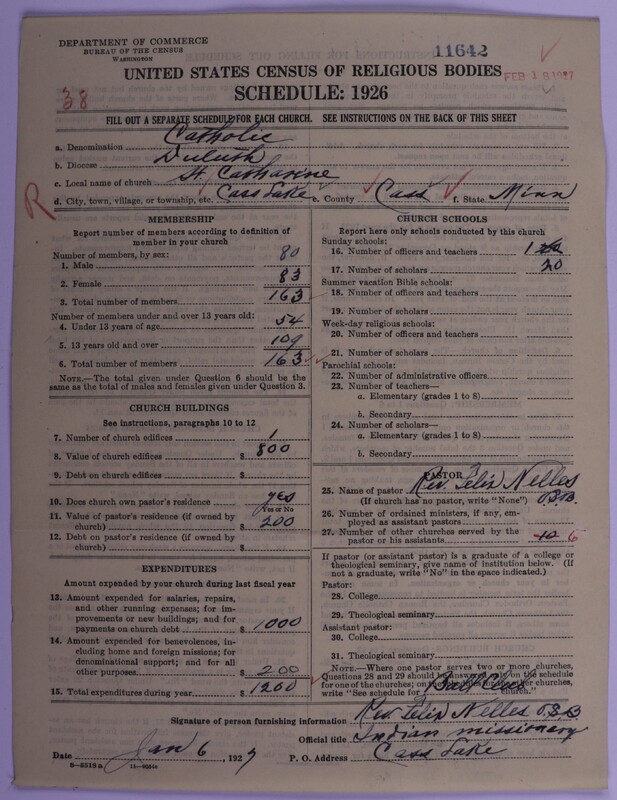 DEPARTMENT OF COMMERCE
BUREAU OF THE CENSUS
WASHINGTON
11642
UNITED STATES CENSUS OF RELIGIOUS BODIES
FEB 18 1927
38
SCHEDULE: 1926
FILL OUT A SEPARATE SCHEDULE FOR EACH CHURCH. SEE INSTRUCTIONS ON THE BACK OF THIS SHEET
a. Denomination Catholic
b. Diocese Duluth
c. Local name of church St. Catharine
R
d. City, town, village, or township, etc. Cass Lake e. County Cass f. State Minn
MEMBERSHIP
Report number of members according to definition of
member in your church
Number of members, by sex:
1. Male 80
2. Female 83
3. Total number of members 163
Number of members under and over 13 years old:
4. Under 13 years of age 54
5. 13 years old and over 109
6. Total number of members 163
NOTE.—The total given under Question 6 should be the
same as the total of males and females given under Question 3.
CHURCH BUILDINGS
See instructions, paragraphs 10 to 12
7. Number of church edifices 1
8. Value of church edifices $ 800
9. Debt on church edifices $
10. Does church own pastor's residence yes
(Yes or No)
11. Value of pastor's residence (if owned by
church) $ 200
12. Debt on pastor's residence (if owned by
church) $
EXPENDITURES
Amount expended by your church during last fiscal year
13. Amount expended for salaries, repairs,
and other running expenses; for im-
provements or new buildings; and for
payments on church debt $ 1000
14. Amount expended for benevolences, in-
cluding home and foreign missions; for
denominational support; and for all
other purposes $ 200
15. Total expenditures during year $ 1200
CHURCH SCHOOLS
Report here only schools conducted by this church
Sunday schools:
16. Number of officers and teachers 1
17. Number of scholars 20
Summer vacation Bible schools:
18. Number of officers and teachers
19. Number of scholars
Week-day religious schools:
20. Number of officers and teachers
21. Number of scholars
Parochial schools:
22. Number of administrative officers
23. Number of teachers—
a. Elementary (grades 1 to 8)
b. Secondary
24. Number of scholars—
a. Elementary (grades 1 to 8)
b. Secondary
PASTOR
25. Name of pastor Rev. Felix Nelles
(If church has no pastor, write "None") O.S.B.
26. Number of ordained ministers, if any, em-
ployed as assistant pastors
27. Number of other churches served by the
pastor or his assistants 10 6
If pastor (or assistant pastor) is a graduate of a college or
theological seminary, give name of institution below. (If
not a graduate, write "No" in the space indicated.)
Pastor:
28. College
29. Theological seminary
Assistant pastor:
30. College
31. Theological seminary
NOTE.—Where one pastor serves two or more churches,
Questions 28 and 29 should be answered only on the schedule
for one of the churches; on the schedules for the other churches,
write "See schedule for Ball Club church."
Signature of person furnishing information Rev. Felix Nelles O.S.B
Official title Indian missionary
Date Jan 6, 1927 P. O. Address Cass Lake
8—5518a